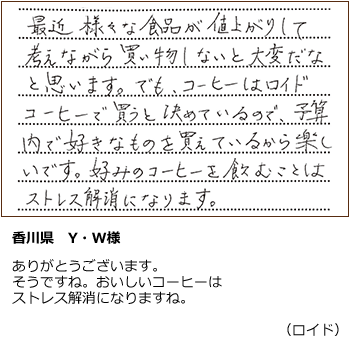 最近 様々な食品が値上がりして
考えながら買い物しないと大変だな
と思います。でも、コーヒーはロイド
コーヒーで買うと決めているので、予算
内で好きなものを買えているから楽し
いです。好みのコーヒーを飲むことは
ストレス解消になります。
香川県 Y・W様
ありがとうございます。
そうですね。おいしいコーヒーは
ストレス解消になりますね。
（ロイド）